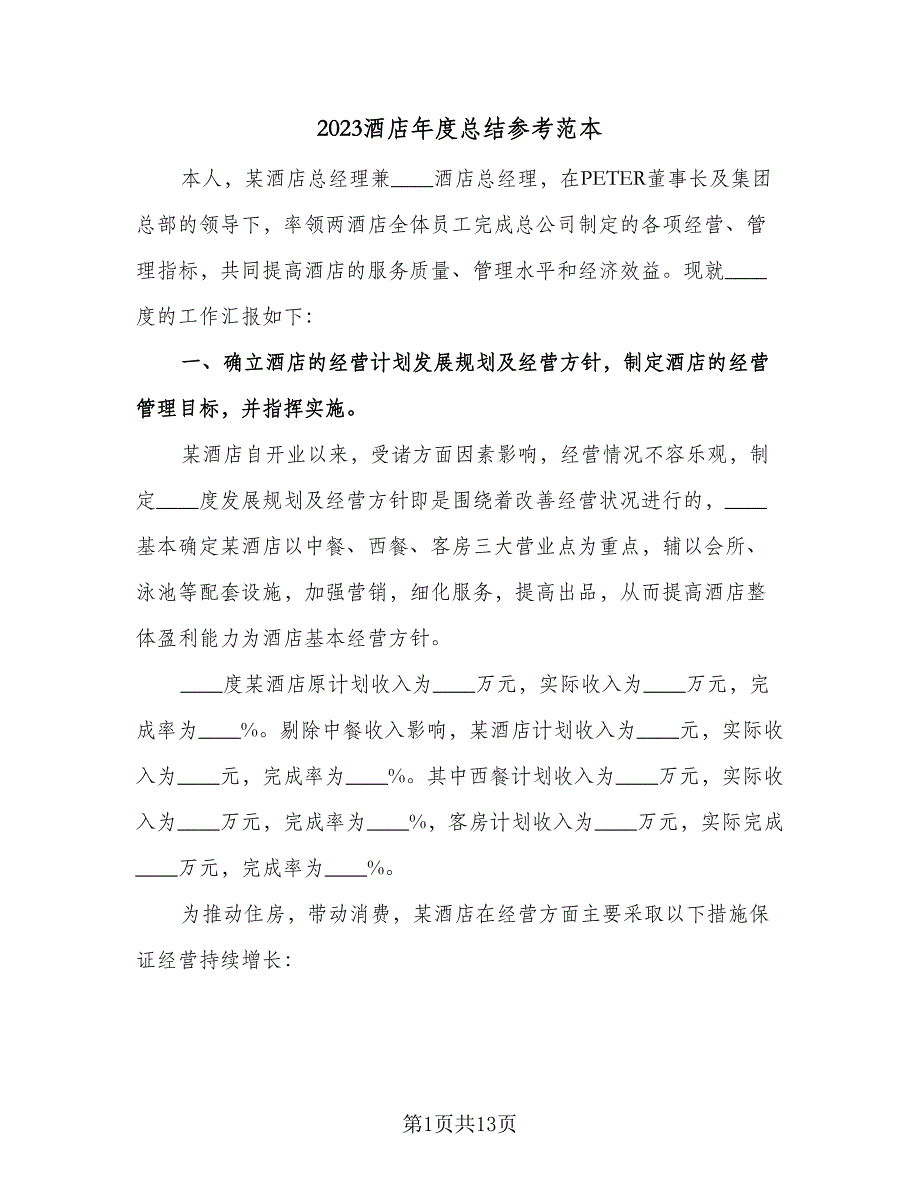 2023酒店年度总结参考范本
本人，某酒店总经理兼____酒店总经理，在PETER董事长及集团
总部的领导下，率领两酒店全体员工完成总公司制定的各项经营、管
理指标，共同提高酒店的服务质量、管理水平和经济效益。现就____
度的工作汇报如下：
一、确立酒店的经营计划发展规划及经营方针，制定酒店的经营
管理目标，并指挥实施。
某酒店自开业以来，受诸方面因素影响，经营情况不容乐观，制
定____度发展规划及经营方针即是围绕着改善经营状况进行的，____
基本确定某酒店以中餐、西餐、客房三大营业点为重点，辅以会所、
泳池等配套设施，加强营销，细化服务，提高出品，从而提高酒店整
体盈利能力为酒店基本经营方针。
____度某酒店原计划收入为____万元，实际收入为____万元，完
成率为____%。剔除中餐收入影响，某酒店计划收入为____元，实际收
入为____元，完成率为____%。其中西餐计划收入为____万元，实际收
入为____万元，完成率为____%，客房计划收入为____万元，实际完成
____万元，完成率为____%。
为推动住房，带动消费，某酒店在经营方面主要采取以下措施保
证经营持续增长：
第1页共13页